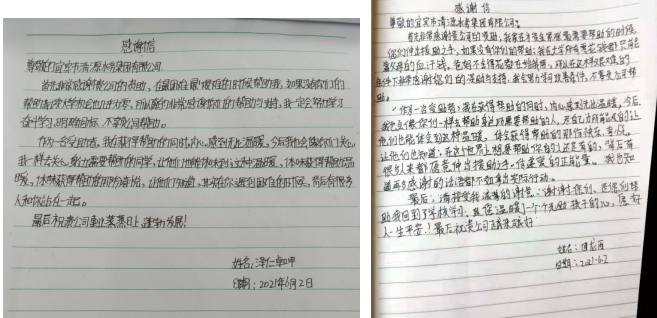 感谢信
尊敬的宜宾市清源水务集团有限公司:
首先非常感谢贵公司的资助，在最困难最艰难的时候帮助我，如果没有你们的
帮助
所以我的非常感谢你们的帮助与支持，我一定会努力学习
奋斗学习，明确目标，不辜负公司帮助。
作为一名受助者，我在获得帮助的同时，内心感到无比温暖，今后我也会像你们关心
我一样去关心身边需要帮助的同学，让他们也能体味到这种温暖，体味获得帮助的温
暖，体味获得帮助的那份幸福，让他们知道，其实在你遇到困难的时候，背后有很多
人和你站在一起。
最后祝贵公司事业蒸蒸日上，蓬勃发展!
姓名: 泽仁卓甲
日期: 2021年6月2日
感谢信
尊敬的宜宾市清源水务集团有限公司:
首先非常感谢贵公司的资助，我家在才至全家最需要帮助的时候
你们伸出援助之手，如果没有你们的帮助，我在大学所有要花钱都只有色
靠父母的血汗钱，
条件下非常感谢你们的资助与支持，我会努力学习改善条件，不辜负公司帮
助。
作为一名受助者，我在获得帮助的同时，内心感到无比温暖，今后
我也会像你们一样去帮助身边那些需要帮助的人，尽自己所能及的让
他们也能体会到这种温暖，体会获得帮助的那份快乐、幸福。
让他们也知道:在这个世界上想要帮助你的人还是有的，背后有
很多人来都愿意伸出援助之手，传递爱的正能量。我也知
道再多感谢的话语都不如拿出实际行动。
最后，请接受我诚挚的谢意:谢谢你们，是你们帮
助我回到了学校学习，且您温暖了一个个受助孩子的心，愿好
人一生平安!最后祝贵公司越来越好
姓名:
日期: 2021.6.2